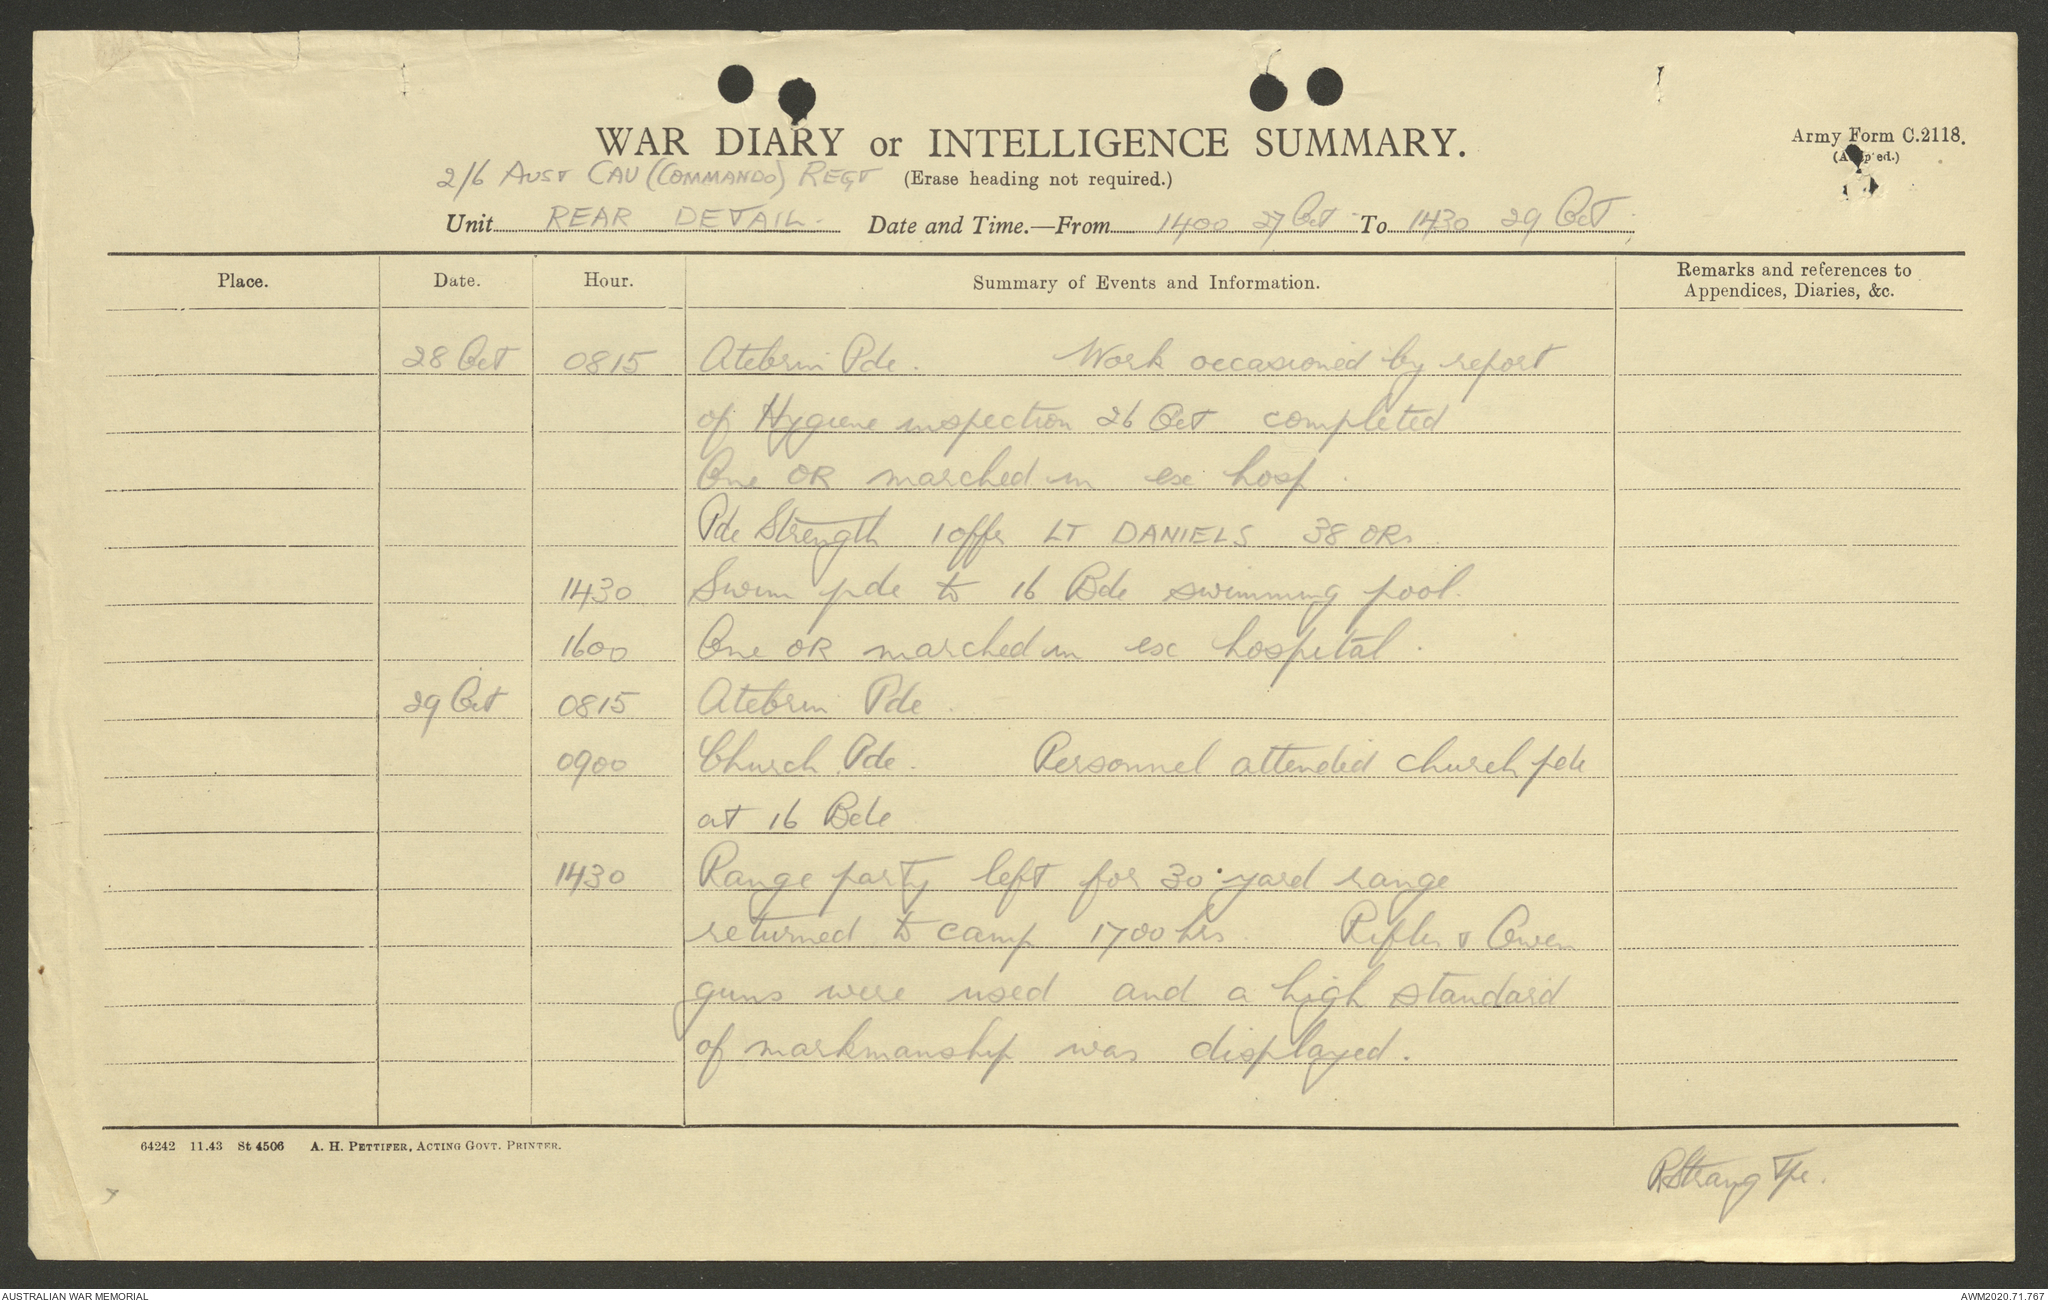 WAR DIARY or INTELLIGENCE SUMMARY.
Army Form C.2118.
2/6 AUST CAV (COMMANDO) REGT (Erase heading not required.)
Unit REAR DETAIL. Date and Time.—From 1400 27 Oct To 1430 29 Oct.
Place. Date. Hour. Summary of Events and Information. Remarks and references to Appendices, Diaries, &c.
28 Oct 0815 Atebrin Pde. Work occasioned by report
of Hygiene inspection 26 Oct completed
One OR marched in ex hosp.
Pde Strength 1 offr LT DANIELS 38 ORs
1430 Swim pde to 16 Bde swimming pool.
1600 One OR marched in ex hospital.
29 Oct 0815 Atebrin Pde.
0900 Church Pde. Personnel attended church pde
at 16 Bde
1430 Range party left for 30 yard range
returned to camp 1700 hrs Rifles & Owen
guns were used and a high standard
of markmanship was displayed.
64242 11.43 St 4506 A. H. PETTIFER, ACTING GOVT. PRINTER.
RStrang Tpr.
AUSTRALIAN WAR MEMORIAL
AWM2020.71.767